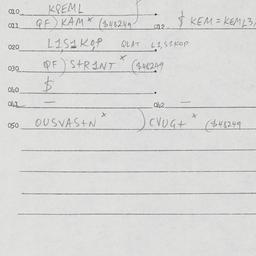 010 KQEML
011 QF) KAM* ($48249 012 $ KEM = KEML3,
020 L1,S1KOP QLAT L1,S1KOP
030 QF) S+R1NT* ($48249
040 $
041 — 042 —
050 OUSVAS+N* ) CVUG+* ($48249